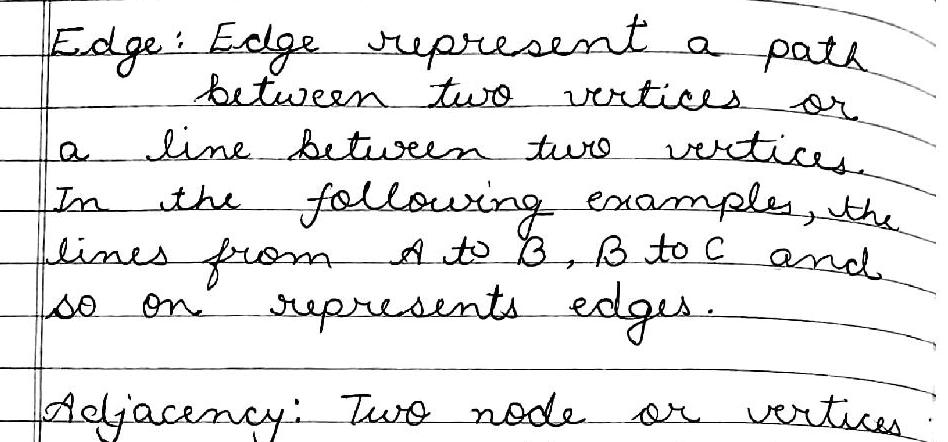 Edge: Edge represent a path
between two vertices or
a line between two vertices.
In the following examples, the
lines from A to B, B to C and
so on represents edges.
Adjacency: Two node or vertices